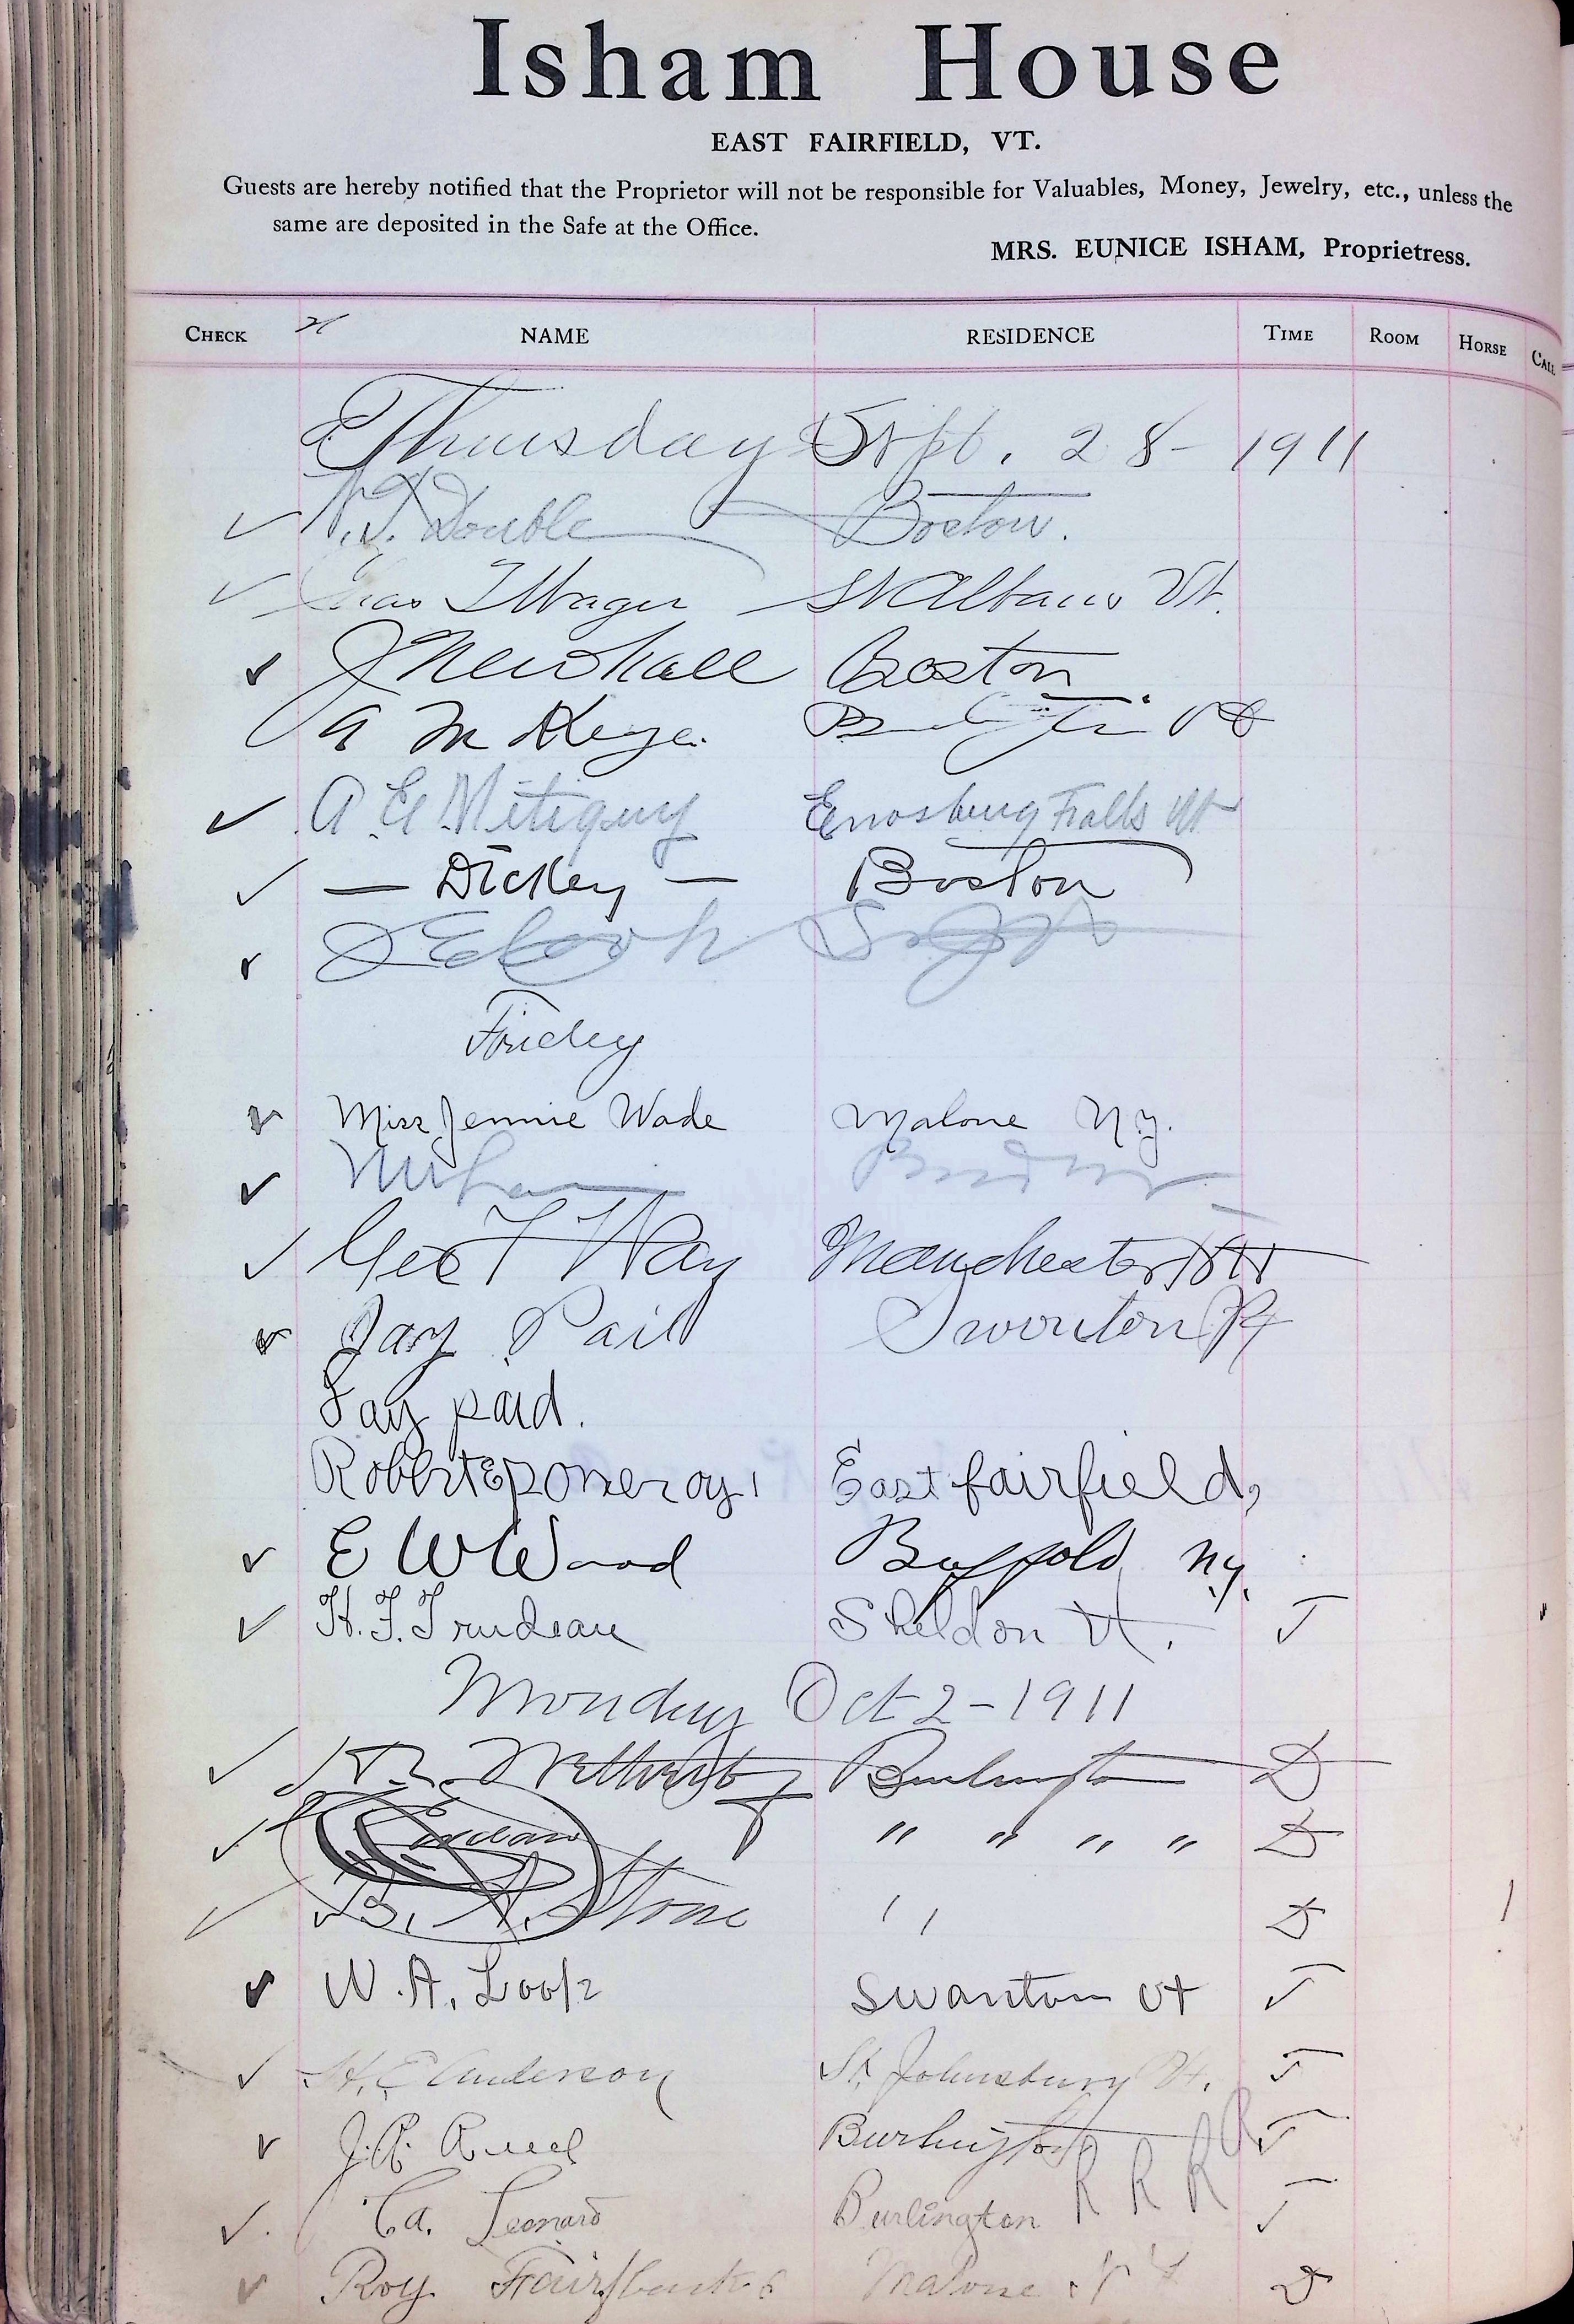 Isham House
EAST FAIRFIELD, VT.
Guests are hereby notified that the Proprietor will not be responsible for Valuables, Money, Jewelry, etc., unless the
same are deposited in the Safe at the Office.
MRS. EUNICE ISHAM, Proprietress.
CHECK NAME RESIDENCE TIME ROOM HORSE CALL
Thursday Sept. 28- 1911
Double Boston.
St Albans Vt.
J Newhall Boston
Vt
A. E. Mitiguy Enosburg Falls Vt
— Dickey — Boston
Friday
Miss Jennie Wade Malone N.Y.
Geo F Way Manchester NH
Jay Paid Swanton Vt
Jay paid.
Robert E pomeroy, East fairfield,
E W Wood Buffalo, N.Y.
H. F. Trudeau Sheldon Vt. T
Monday Oct 2-1911
Burlington D
" " " " D
B. A. Stone " D
W. A. Loop Swanton Vt T
H. E Anderson St. Johnsbury Vt. T
J. A. Burlington T
C a. Leonard Burlington R R R R T
Roy Fairbanks Malone N Y D